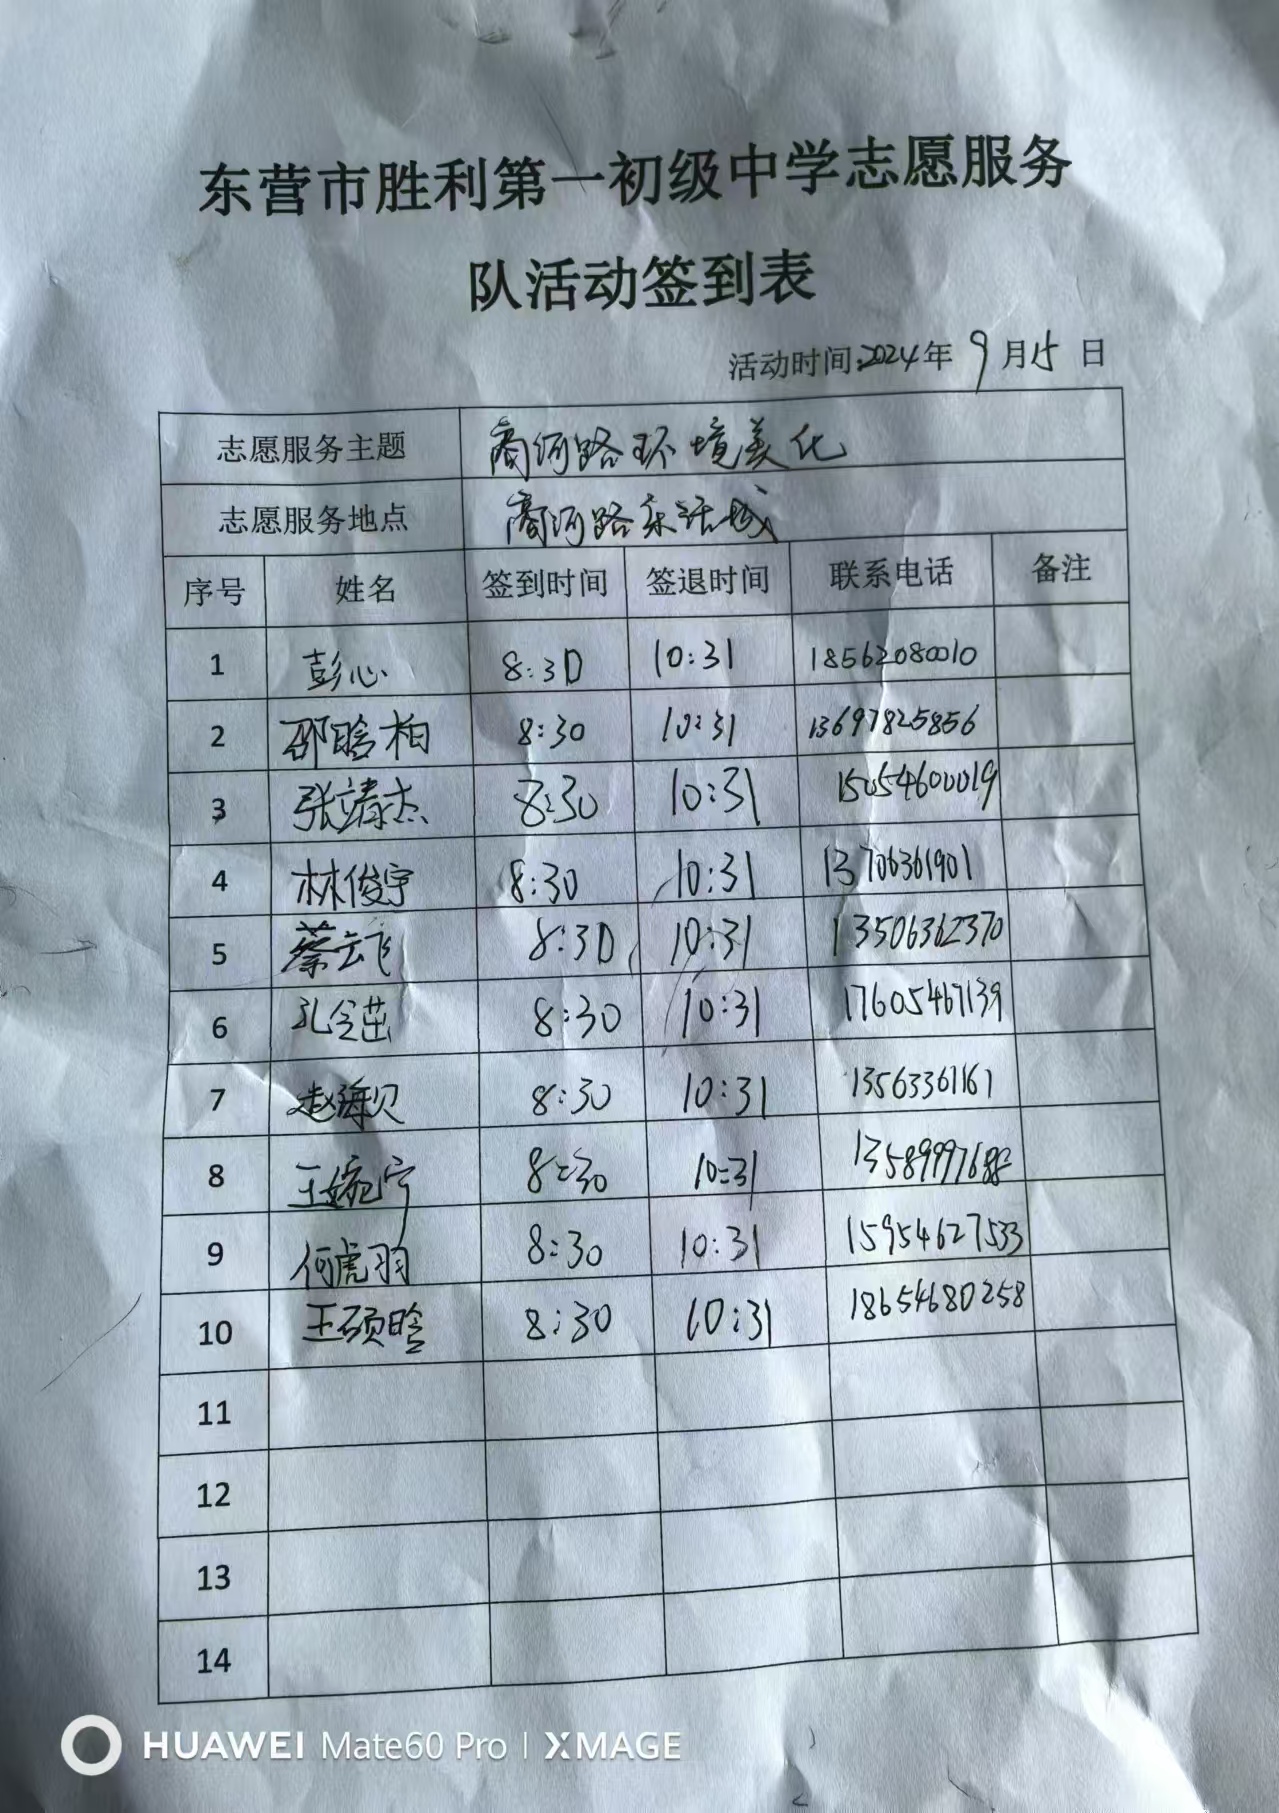 东营市胜利第一初级中学志愿服务
队活动签到表
活动时间:2024年 9月15日
志愿服务主题 商河路环境美化
志愿服务地点 商河路东活城
序号 姓名 签到时间 签退时间 联系电话 备注
1 彭心 8:30 10:31 18562080010
2 邵晗柏 8:30 10:31 13697825856
3 张靖杰 8:30 10:31 15054600019
4 林俊宇 8:30 10:31 13706361901
5 蔡云飞 8:30 10:31 13506362370
6 孔令茁 8:30 10:31 17605467139
7 赵海贝 8:30 10:31 13563361161
8 王婉宁 8:30 10:31 13589997688
9 何虎羽 8:30 10:31 15954627533
10 王硕晗 8:30 10:31 18654680258
11
12
13
14
HUAWEI Mate60 Pro | XMAGE